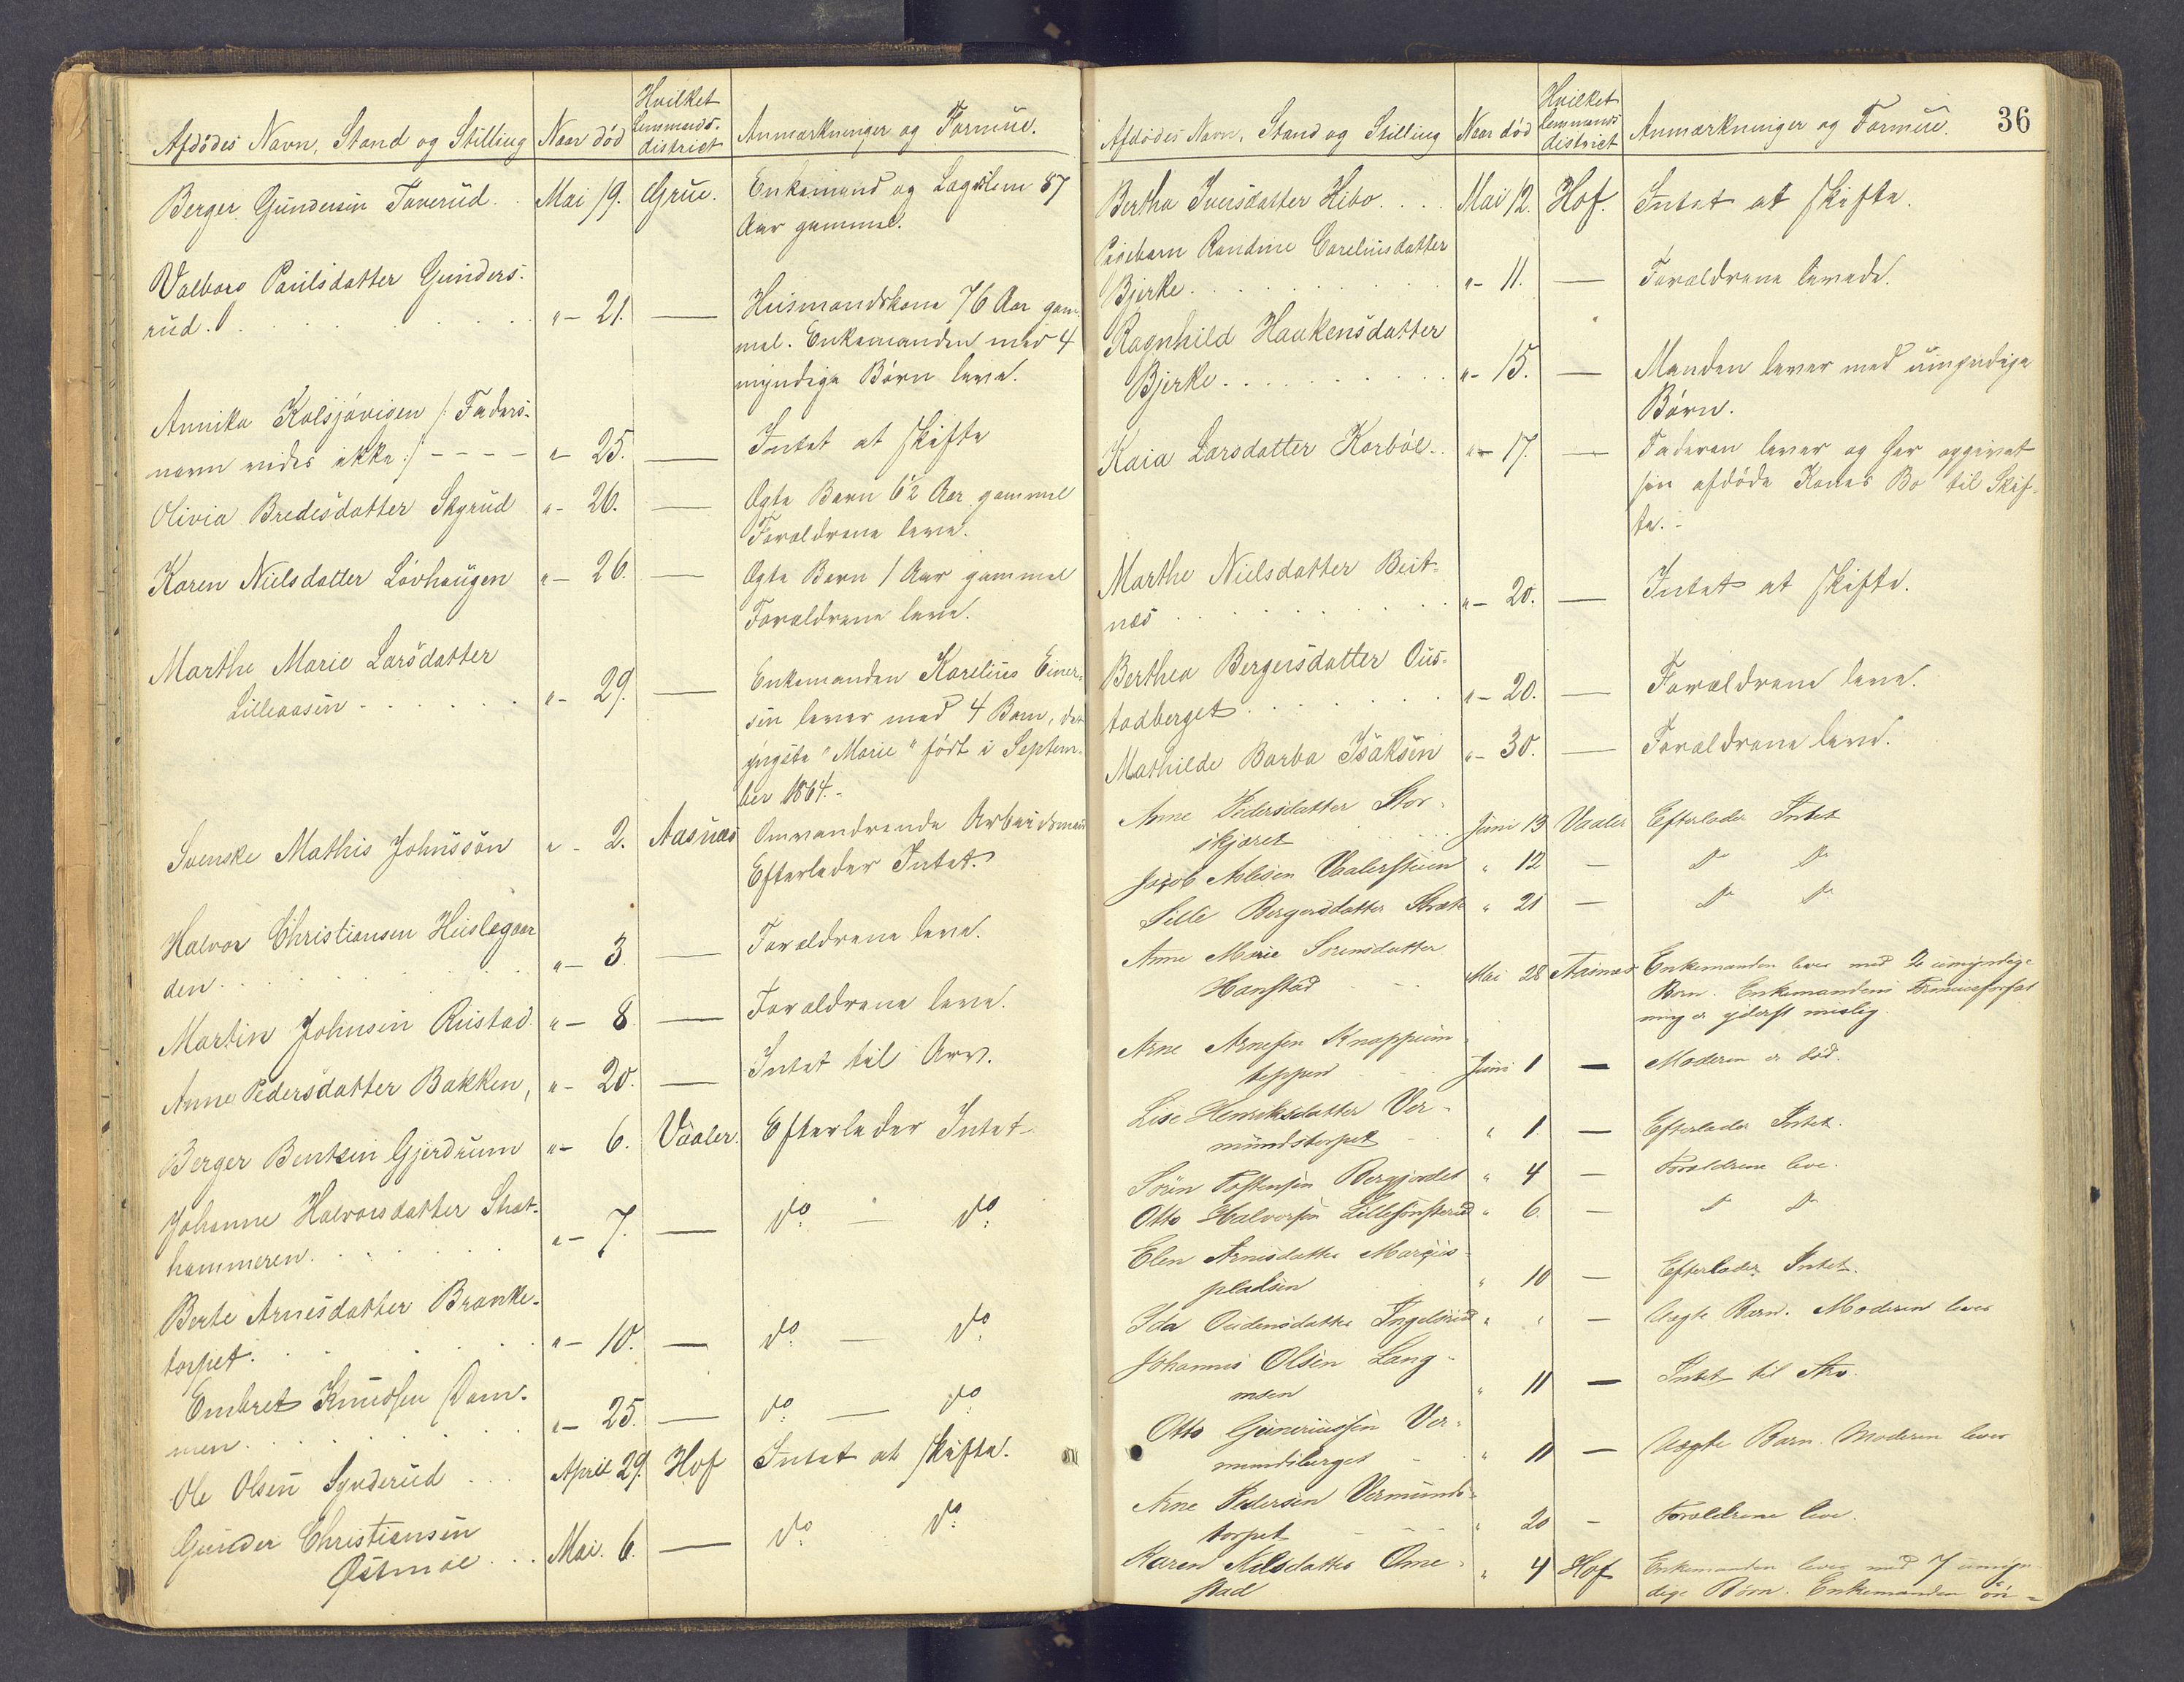 Afdödes Navn, Stand og Stilling | Naar död | Hvilket Lensmands-district | Anmærkninger og Formue.
Berger Gundersen Taverud . . | Mai 19. | Grue. | Enkemand og Lægdslem 87
Aar gammel.
Valborg Paulsdatter Gunders-
rud. . . . | "- 21. | — | Huismandskone 76 Aar gam-
mel. Enkemanden med 4
myndige Börn leve.
Annika Kolsjövigen /: Faders-
navn vides ikke :/ - - - - | "- 25. | — | Intet at skifte
Olivia Bredesdatter Skyrud | "- 26. | — | Ægte Barn 6½ Aar gammel
Forældrene leve.
Karen Nielsdatter Lövhaugen | "- 26. | — | Ægte Barn 1 Aar gammel
Forældrene leve.
Marthe Marie Larsdatter
Lilleaasen - . . . . | "- 29. | — | Enkemanden Karelius Einer-
sen lever med 4 Barn, det
yngste "Marie" født i Septem-
ber 1864.-
Svenske Mathis Johnssön | "- 2. | Aasnæs | Omvandrende Arbeidsmand
Efterlader Intet.
Halvor Christiansen Huslegaar
den . . . | "- 3. | — | Forældrene leve.
Martin Johnsen Rustad | "- 8 | — | Forældrene leve.
Anne Pedersdatter Bakken, | "- 20. | — | Intet til Arv.
Berger Bentsen Gjerdrum | "- 6. | Vaaler. | Efterlader Intet
Johanne Halvorsdatter Strat-
hammeren. . . . | "- 7. | — | do — do
Berte Arnesdatter Branke-
torpet. . . . | "- 10. | — | do — do
Embret Knudsen Dam-
men . . . . | "- 25. | — | do — do
Ole Olsen Synderud . . . | April 29. | Hof | Intet at skifte.
Gunder Christiansen
Østmoe . . . | Mai. 6. | — | do do
36
Afdödes Navn, Stand og Stilling | Naar död | Hvilket Lensmands district | Anmærkninger og Formue.
Bertha Iversdatter Kibo. . . . | Mai 12. | Hof. | Intet at skifte.
Pigebarn Randine Careliusdatter
Bjerke . . . . | "- 11. | — | Forældrene levede.
Ragnhild Haakensdatter
Bjerke . . . . | "- 15. | — | Manden lever med umyndige
Börn.
Kaia Larsdatter Korböl. . | "- 17. | — | Faderen lever og har opgivet
sin afdöde Kones Bo til Skif-
te. -
Marthe Nielsdatter Beit-
næs . . . . | "- 20. | — | Intet at skifte.
Berthea Bergersdatter Ous-
tadberget . . . . | "- 20. | — | Forældrene leve.
Mathilde Barba Isaksen | "- 30. | — | Forældrene leve.
Anne Pedersdatter Stor-
skjæret | Juni 13 | Vaaler | Efterlader Intet
Jacob Aslesen Vaalersteien | " 12 | — | do do
Sille Bergersdatter Stræte | " 21 | — | do do
Anne Marie Sörensdatter
Hanstad | Mai 28 | Aasnæs | Enkemanden lever med 2 umyndige
Born. Enkemandens Formuesforfat
ning er yderst mislig.
Arne Arnesen Knappum-
teppen | Juni 1 | — | Moderen er död.
Lise Henriksdatter Ver-
mundstorpet | " 1. | — | Efterlader Intet.
Sören Tostensen Bergjordet | " 4 | — | Forældrene leve.
Otto Halvorsen Lillesönsterud | " 6. | — | do do
Elen Arnesdatter Margus-
pladsen | " 10 | — | Efterlader Intet.
Ida Oudensdatter Ingelsrud | " " | — | Uægte Barn. Moderen lever
Johannes Olsen Lang-
moen | " 11 | — | Intet til Arv.
Otto Guneriussen Ver-
mundsberget | " 11 | — | Uægte Barn. Moderen lever
Arne Pedersen Vermunds-
torpet | " 20 | — | Forældrene leve.
Karen Nilsdatter Ome-
stad | " 4 | Hof | Enkemanden lever med 7 umyn-
dige Börn. Enkemanden ön-